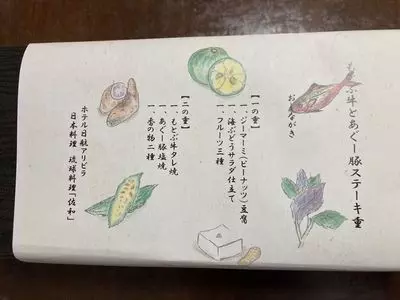 もとぶ牛とあぐー豚ステーキ重
お品がき
【一の重】
一、ジーマーミ(ピーナッツ)豆腐
一、海ぶどうサラダ仕立て
一、フルーツ三種
【二の重】
一、もとぶ牛タレ焼
一、あぐー豚塩焼
一、香の物二種
ホテル日航アリビラ
日本料理・琉球料理「佐和」